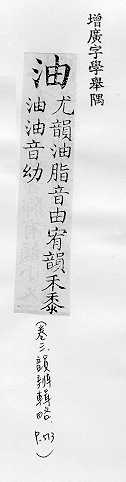 增廣字學舉隅
油
尤韻油脂音由宥韻禾黍
油油音幼
(卷三.韻辨輯略.